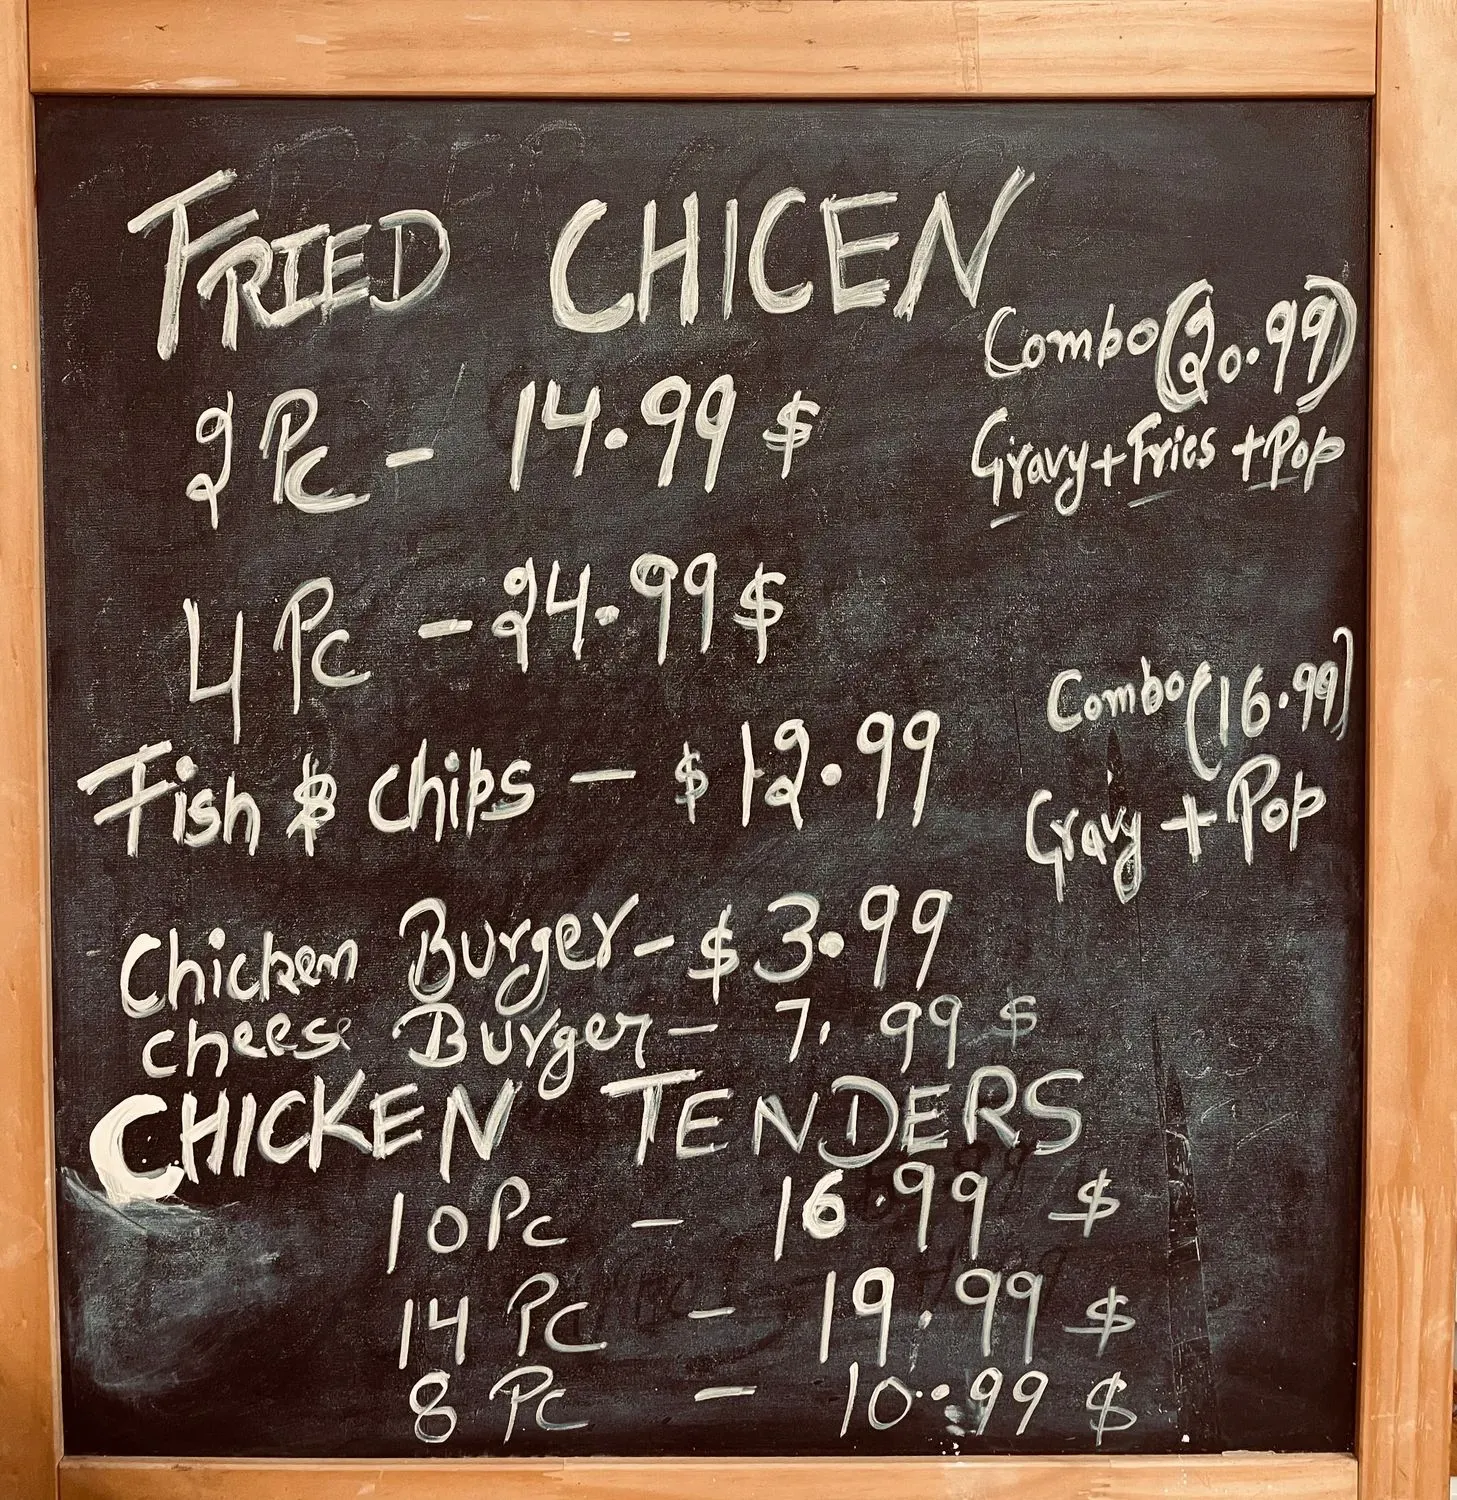 FRIED CHICEN
Combo (20.99)
2 Pc - 14.99 $
Gravy + Fries + Pop
4 Pc - 24.99 $
Combo (16.99)
Fish & chips - $ 12.99
Gravy + Pop
Chicken Burger - $ 3.99
cheese Burger - 7.99 $
CHICKEN TENDERS
10 Pc - 16.99 $
14 Pc - 19.99 $
8 Pc - 10.99 $